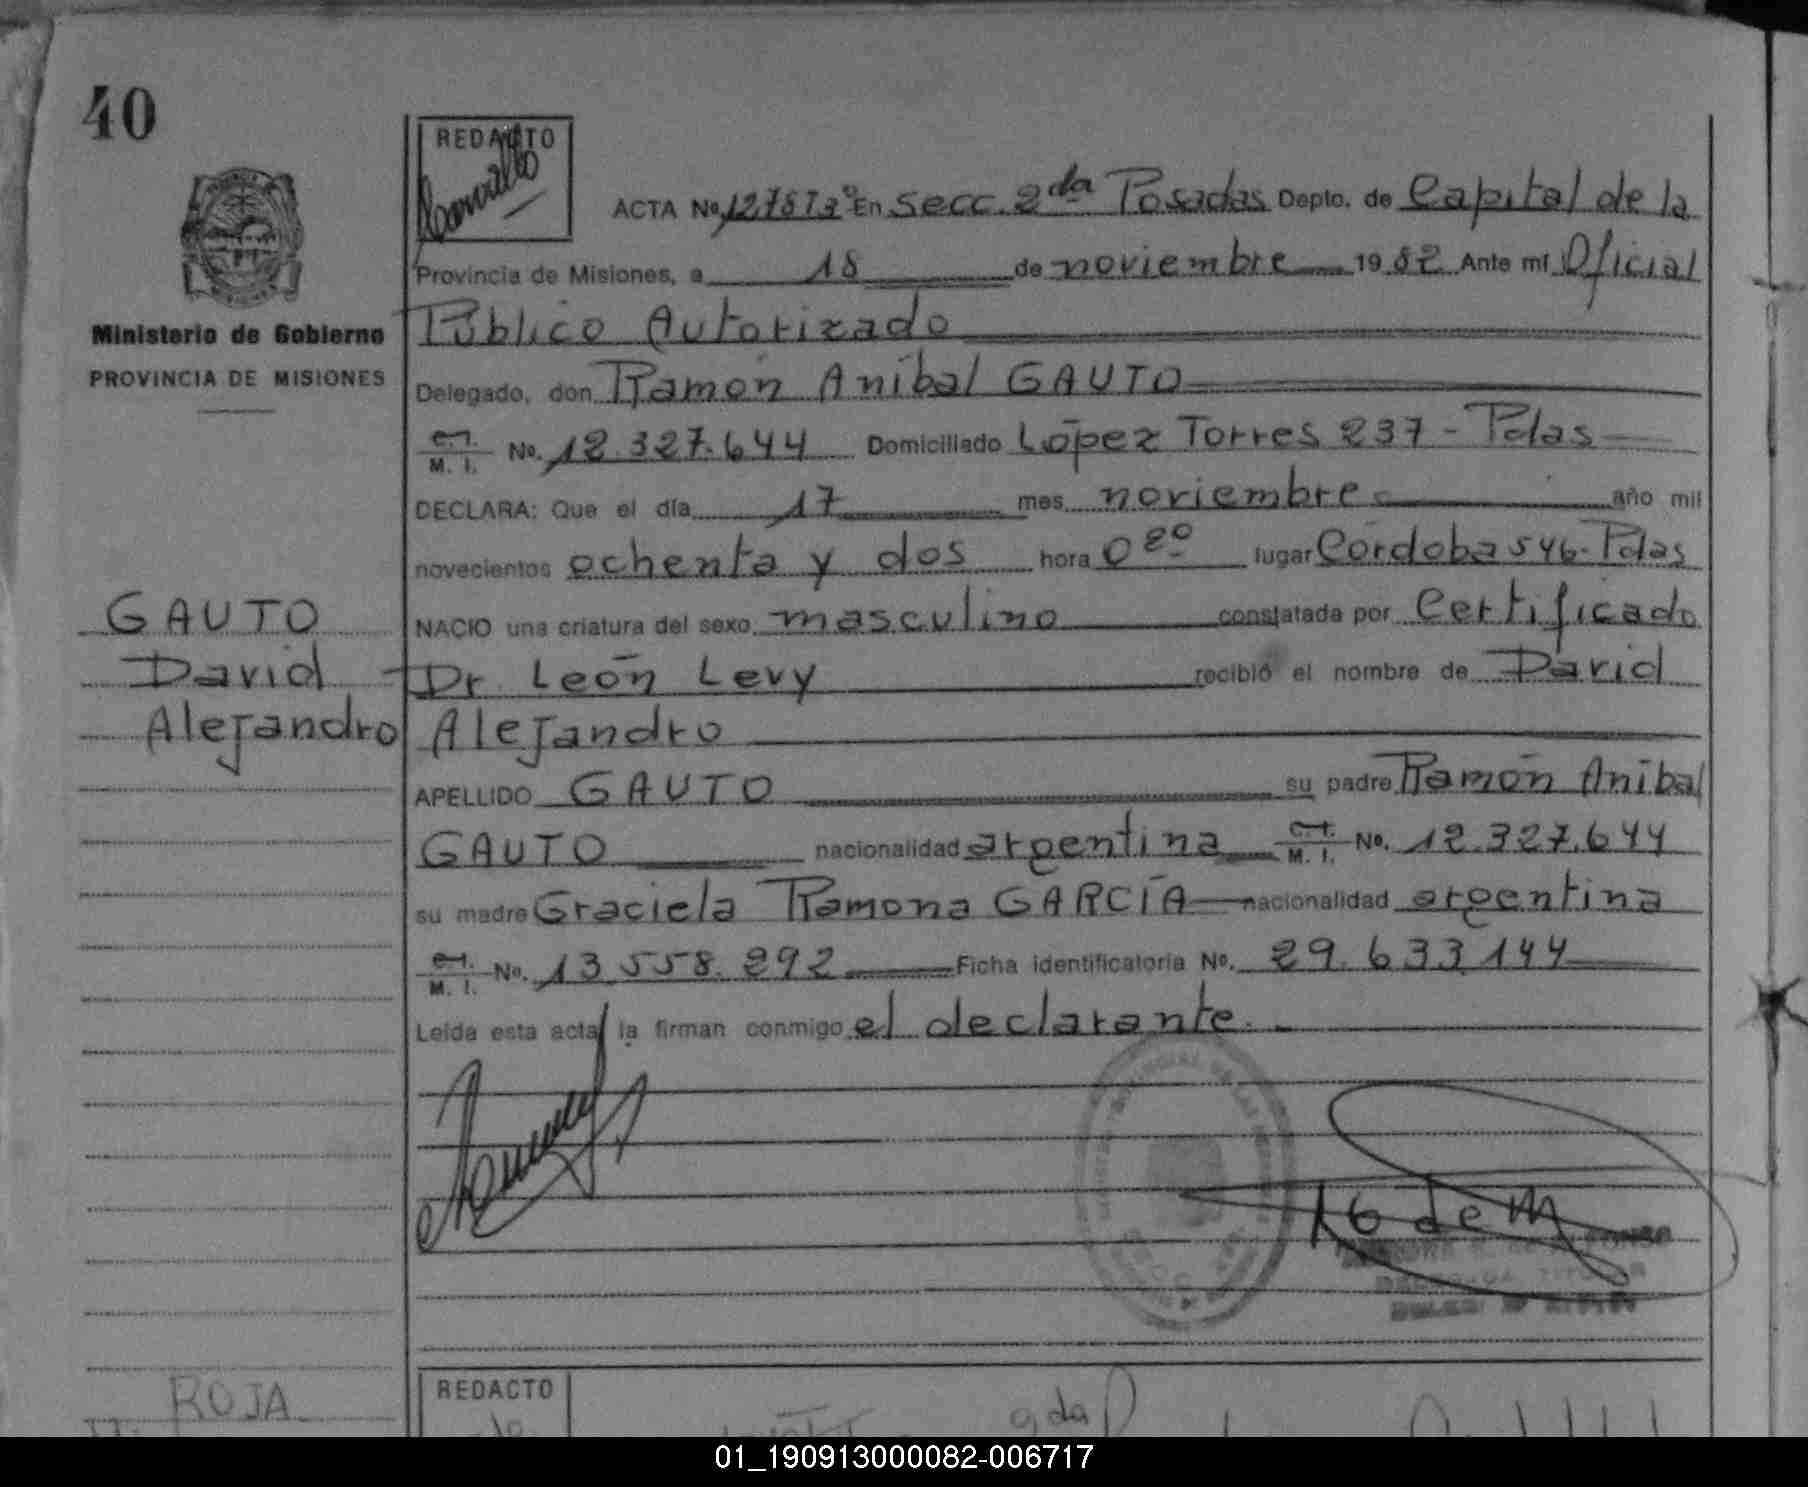 40
REDACTO
ACTA No. En Secc. 2da Posadas Depto. de Capital de la
Provincia de Misiones, a 18 de noviembre 1982 Ante mí Oficial
Ministerio de Gobierno
PROVINCIA DE MISIONES
Público Autorizado
Delegado, don Ramón Aníbal GAUTO
C.I. M. I. No. 12.327.644 Domiciliado López Torres 237 - Pdas
DECLARA: Que el día 17 mes noviembre año mil
novecientos ochenta y dos hora 0 20 lugar Córdoba 546 - Pdas
GAUTO
David
Alejandro
NACIO una criatura del sexo masculino constatada por Certificado
Dr. León Levy recibió el nombre de David
Alejandro
APELLIDO GAUTO su padre Ramón Aníbal
GAUTO nacionalidad argentina C.I. M. I. No. 12.327.644
su madre Graciela Ramona GARCÍA nacionalidad argentina
C.I. M. I. No. 13.558.292 Ficha identificatoria No. 29.633.144
Leída esta acta, la firman conmigo el declarante.
ROJA
REDACTO
01_190913000082-006717